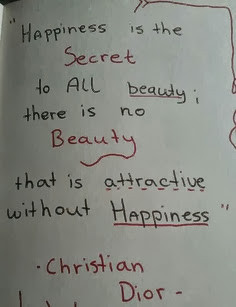 "Happiness is the
Secret
to ALL beauty;
there is no
Beauty
that is attractive
without Happiness"
·Christian
Dior-